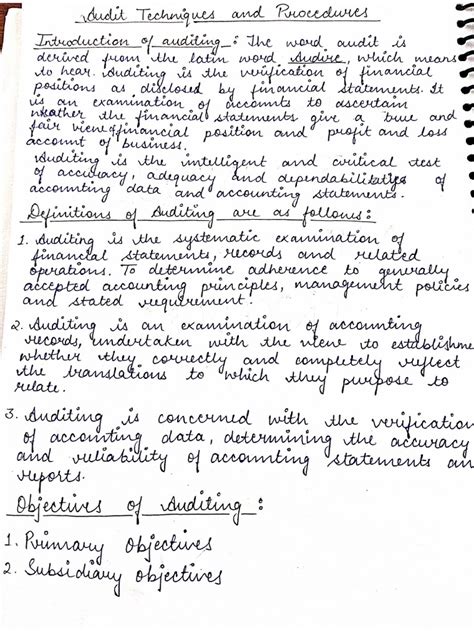 Audit Techniques and Procedures
Introduction of auditing : The word audit is
derived from the latin word Audire, which means
to hear. Auditing is the verification of financial
positions as disclosed by financial statements. It
is an examination of accounts to ascertain
whether the financial statements give a true and
fair view financial position and profit and loss
account of business.
Auditing is the intelligent and critical test
of accuracy, adequacy and dependabilities of
accounting data and accounting statements.
Definitions of Auditing are as follows :
1. Auditing is the systematic examination of
financial statements, records and related
operations. To determine adherence to generally
accepted accounting principles, management policies
and stated requirement.
2. Auditing is an examination of accounting
records, undertaken with the view to establishme
whether they correctly and completely reflect
the translations to which they purpose to
relate.
3. Auditing is concerned with the verification
of accounting data, determining the accuracy
and reliability of accounting statements an
reports.
Objectives of Auditing :
1. Primary objectives
2. Subsidiary objectives